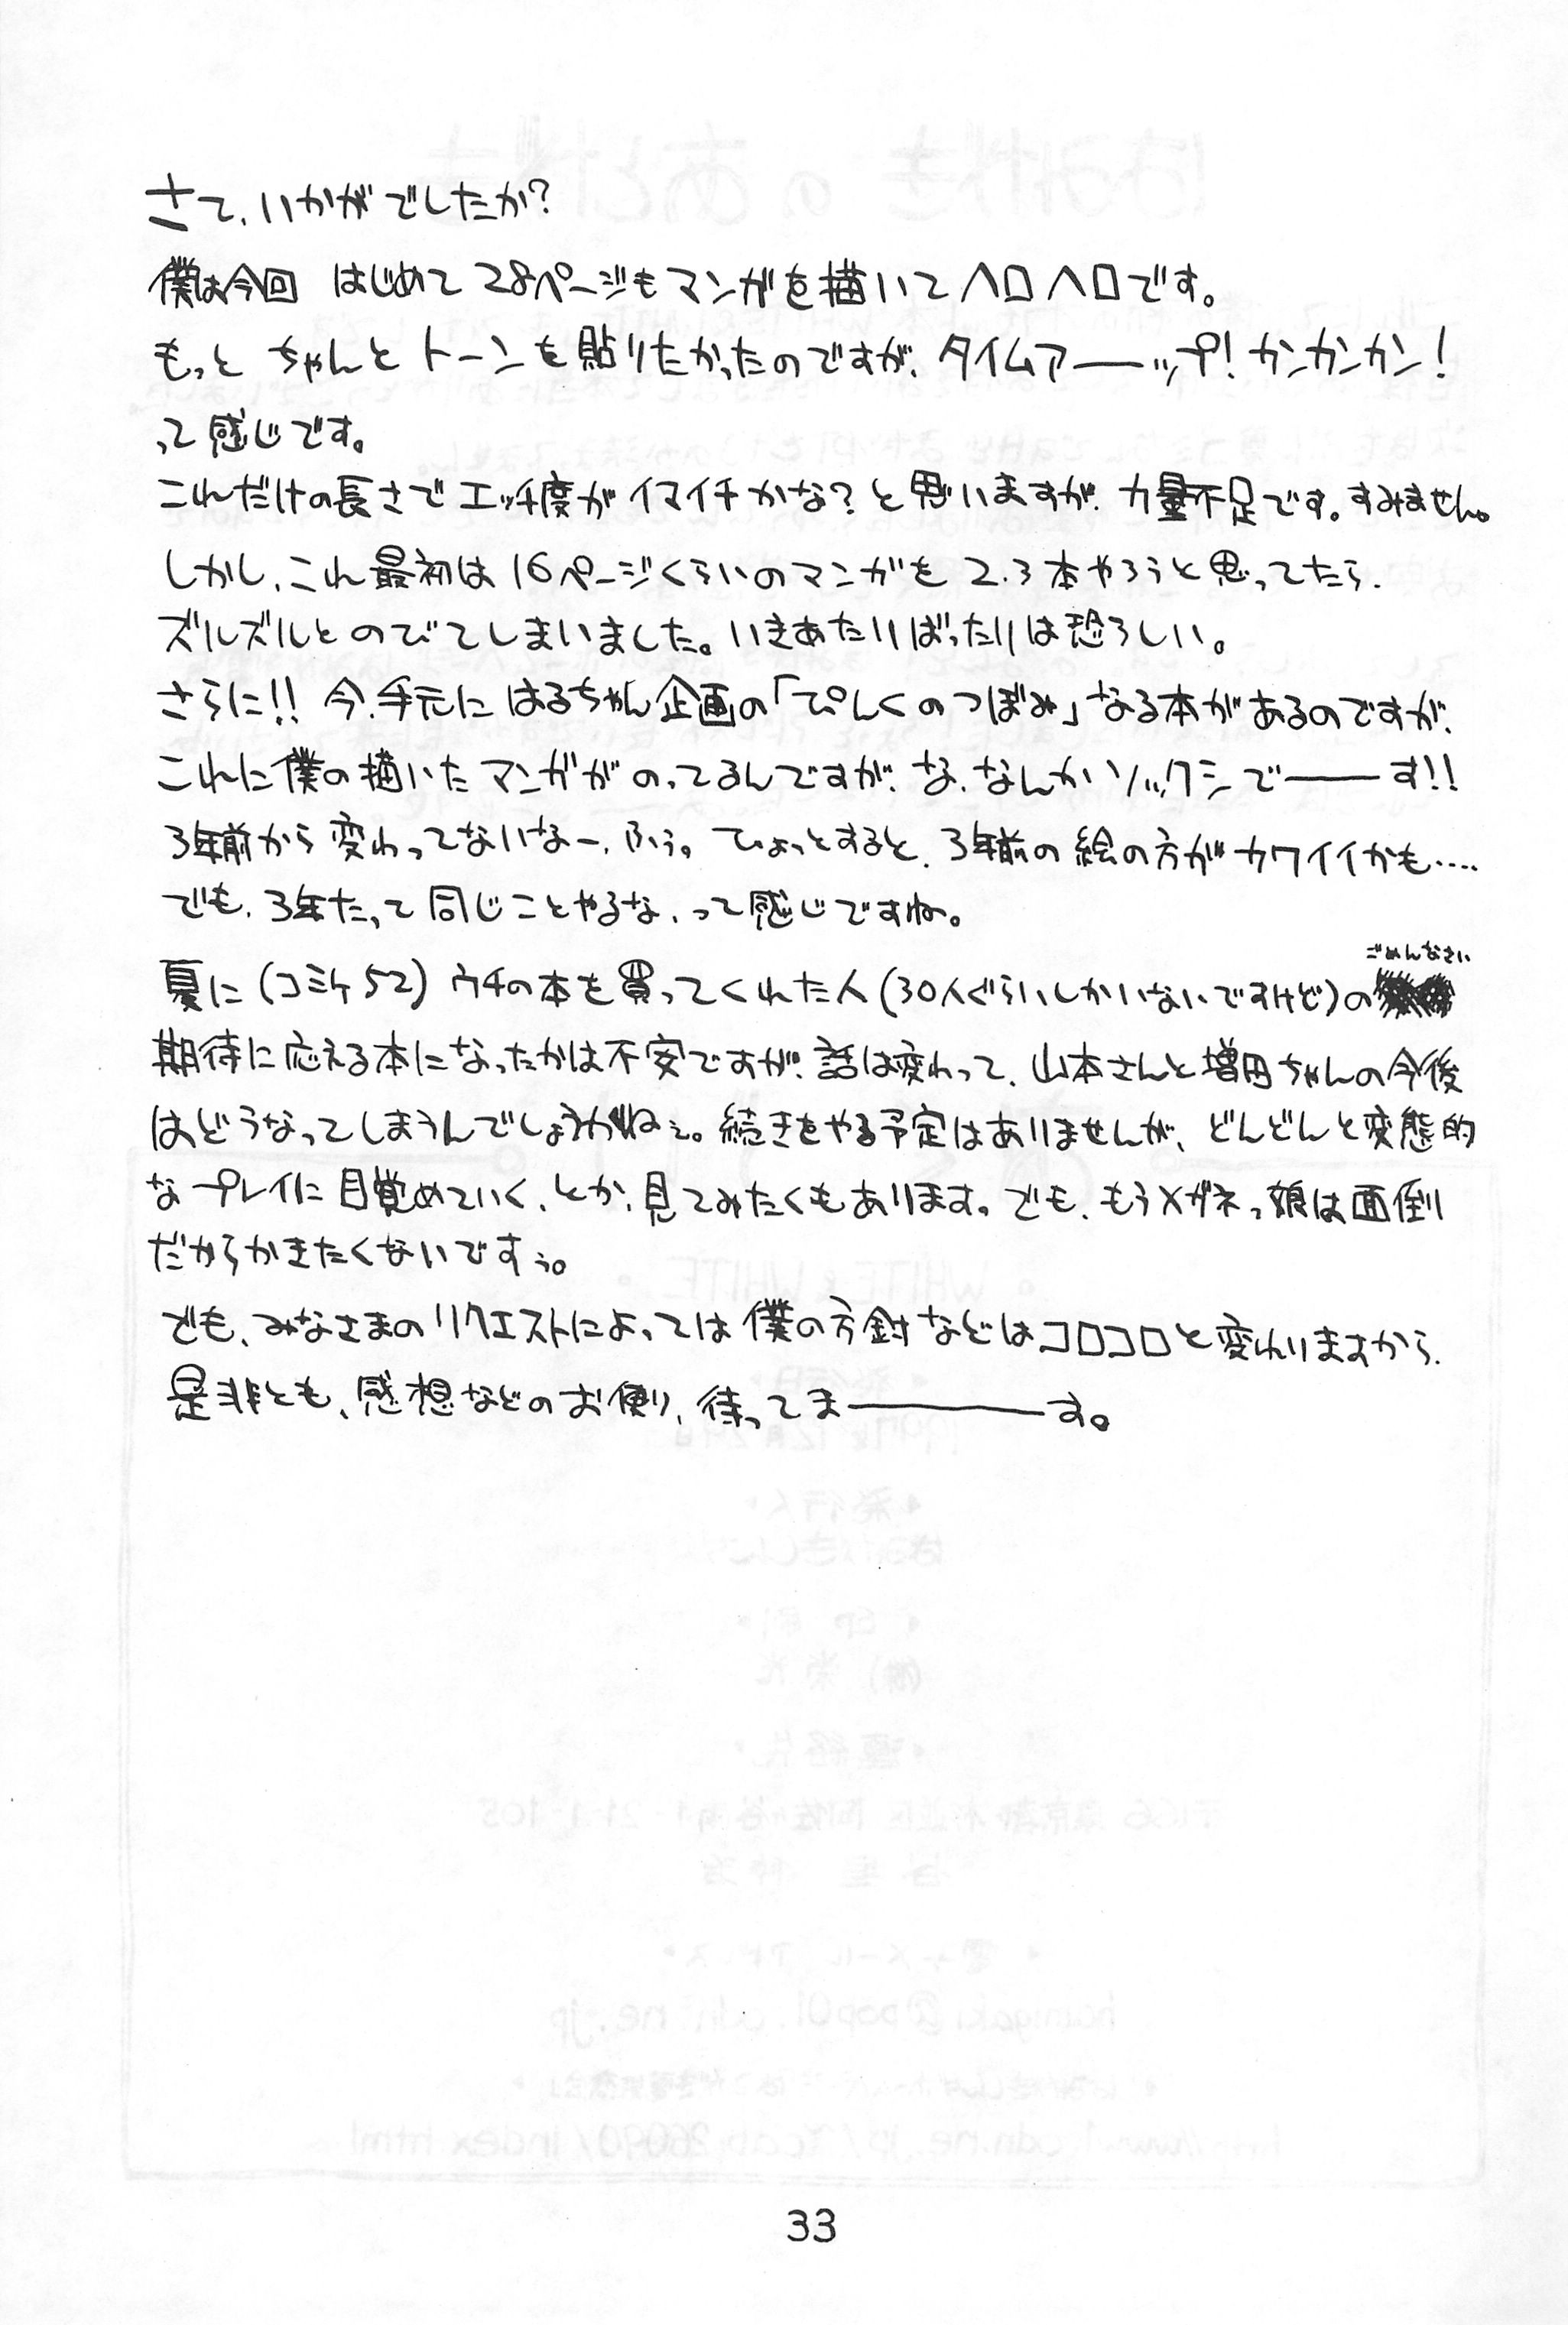 さて、いかがでしたか?
僕は今回 はじめて28ページもマンガを描いてヘロヘロです。
もっと ちゃんとトーンを貼りたかったのですが、タイムアーーップ!カンカンカン!
って感じです。
これだけの長さでエッチ度がイマイチかな?と思いますが、力量不足です。すみません。
しかし、これ最初は16ページくらいのマンガを2、3本やろうと思ってたら、
ズルズルとのびてしまいました。いきあたりばったりは恐ろしい。
さらに!!今、手元にはるちゃん企画の「ぴんくのつぼみ」なる本があるのですが、
これに僕の描いたマンガがのってるんですが、な、なんかソックシで――す!!
3年前から変わってないなー、ふぅ。ひょっとすると、3年前の絵の方がカワイイかも‥‥
でも、3年たって同じことやるな、って感じですね。
ごめんなさい
夏に(コミケ52)ウチの本を買ってくれた人(30人ぐらいしかいないですけど)の
期待に応える本になったかは不安ですが、話は変わって、山本さんと増田ちゃんの今後
はどうなってしまうんでしょうかねぇ。続きをやる予定はありませんが、どんどんと変態的
なプレイに目覚めていく、とか、見てみたくもあります。でも、もうメガネっ娘は面倒
だからかきたくないですぅ。
でも、みなさまのリクエストによっては僕の方針などはコロコロと変わりますから、
是非とも、感想などのお便り、待ってま―――す。
33